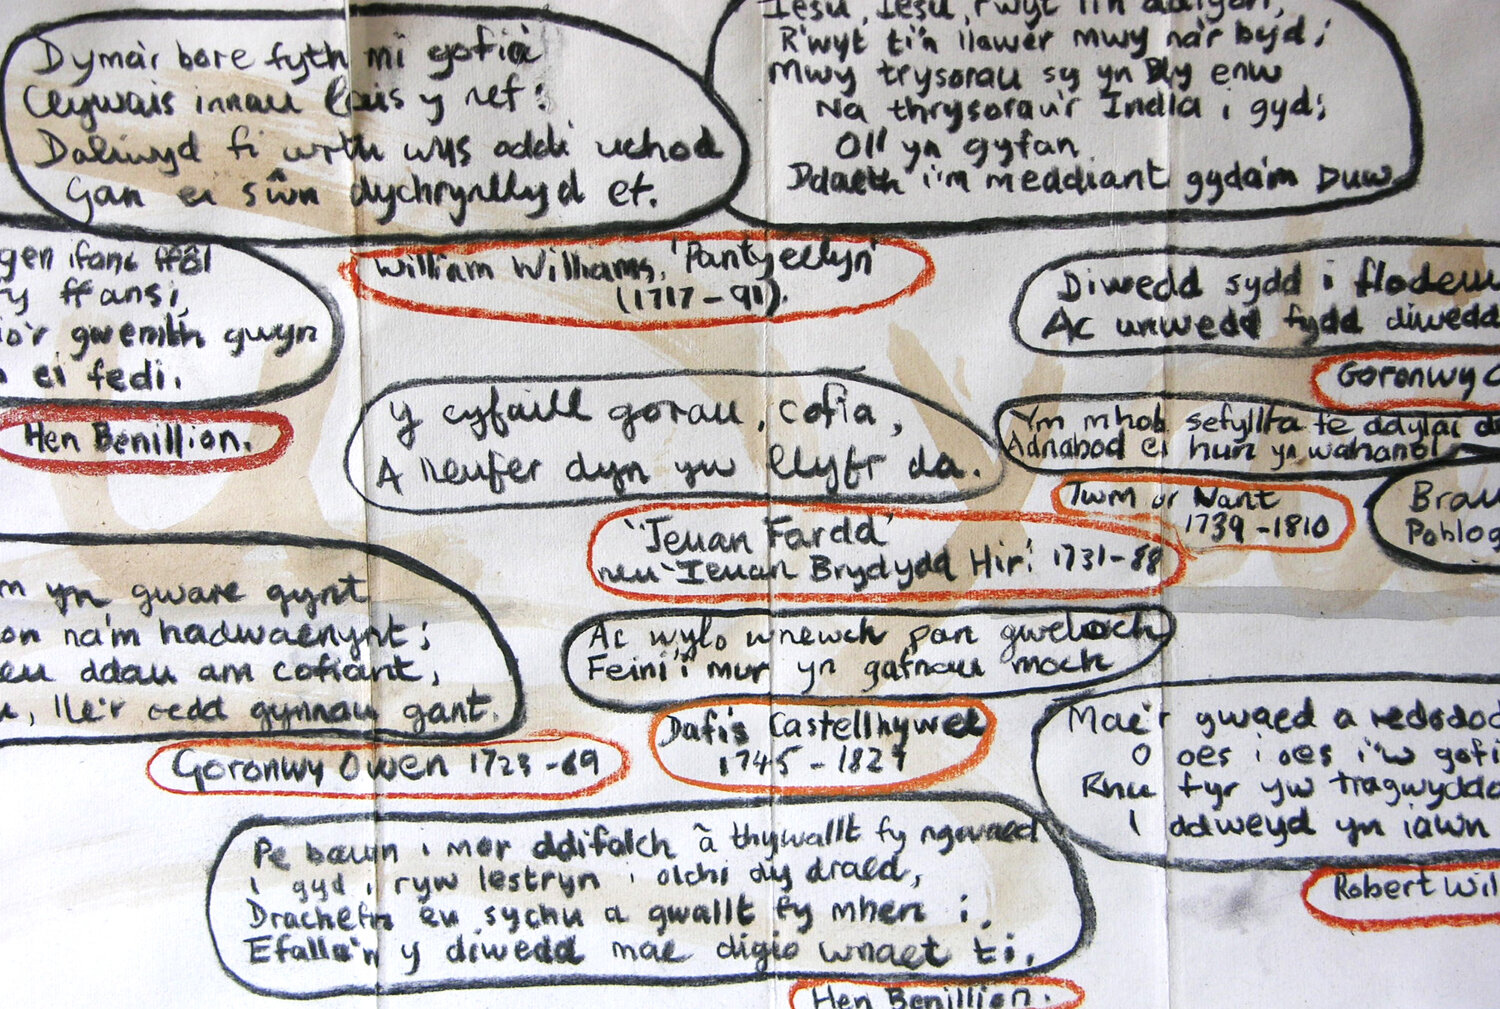 Dyma'r bore fyth mi gofia
Clywais innau lais y nef:
Daliwyd fi wrth wŷs oddi uchod
Gan ei sŵn dychrynllyd ef.
Iesu, Iesu, r'wyt ti'n ddigon,
R'wyt ti'n llawer mwy na'r byd;
Mwy trysorau sy yn Dy enw
Na thrysorau'r India i gyd;
Oll yn gyfan
Ddaeth i'm meddiant gyda'm Duw.
William Williams, 'Pantycelyn'
(1717 - 91).
gen ifanc ffôl
fy ffansi,
io'r gwenith gwyn
ei fedi.
Hen Benillion.
Diwedd sydd i flodeu
Ac unwedd fydd diwedd
Goronwy O
Y cyfaill gorau, cofia,
A neufer dyn yw llyfr da.
Ym mhob sefyllfa fe ddylai d
Adnabod ei hun yn wahanol
Twm or Nant
1739 - 1810
Brau
Poblog
'Ieuan Fardd'
neu 'Ieuan Brydydd Hir' 1731-88
m yn gware gynt
on na'm hadwaenynt;
eu ddau am cofiant,
u, lle'r oedd gynnau gant.
Goronwy Owen 1723 - 69
Ac wylo wnewch pan gweloch
Feini'i mur yn gafnau moch
Dafis Castellhywel
1745 - 1827
Mae'r gwaed a redodd
O oes i oes i'w gofi
Rhu fyr yw tragwyddo
I ddweyd yn iawn
Robert Wil
Pe bawn i mor ddifalch â thywallt fy ngwaed
i gyd i ryw lestryn i olchi dy draed,
Drachefn eu sychu a gwallt fy mhen i,
Efalla'n y diwedd mae digio wnaet ti.
Hen Benillion.